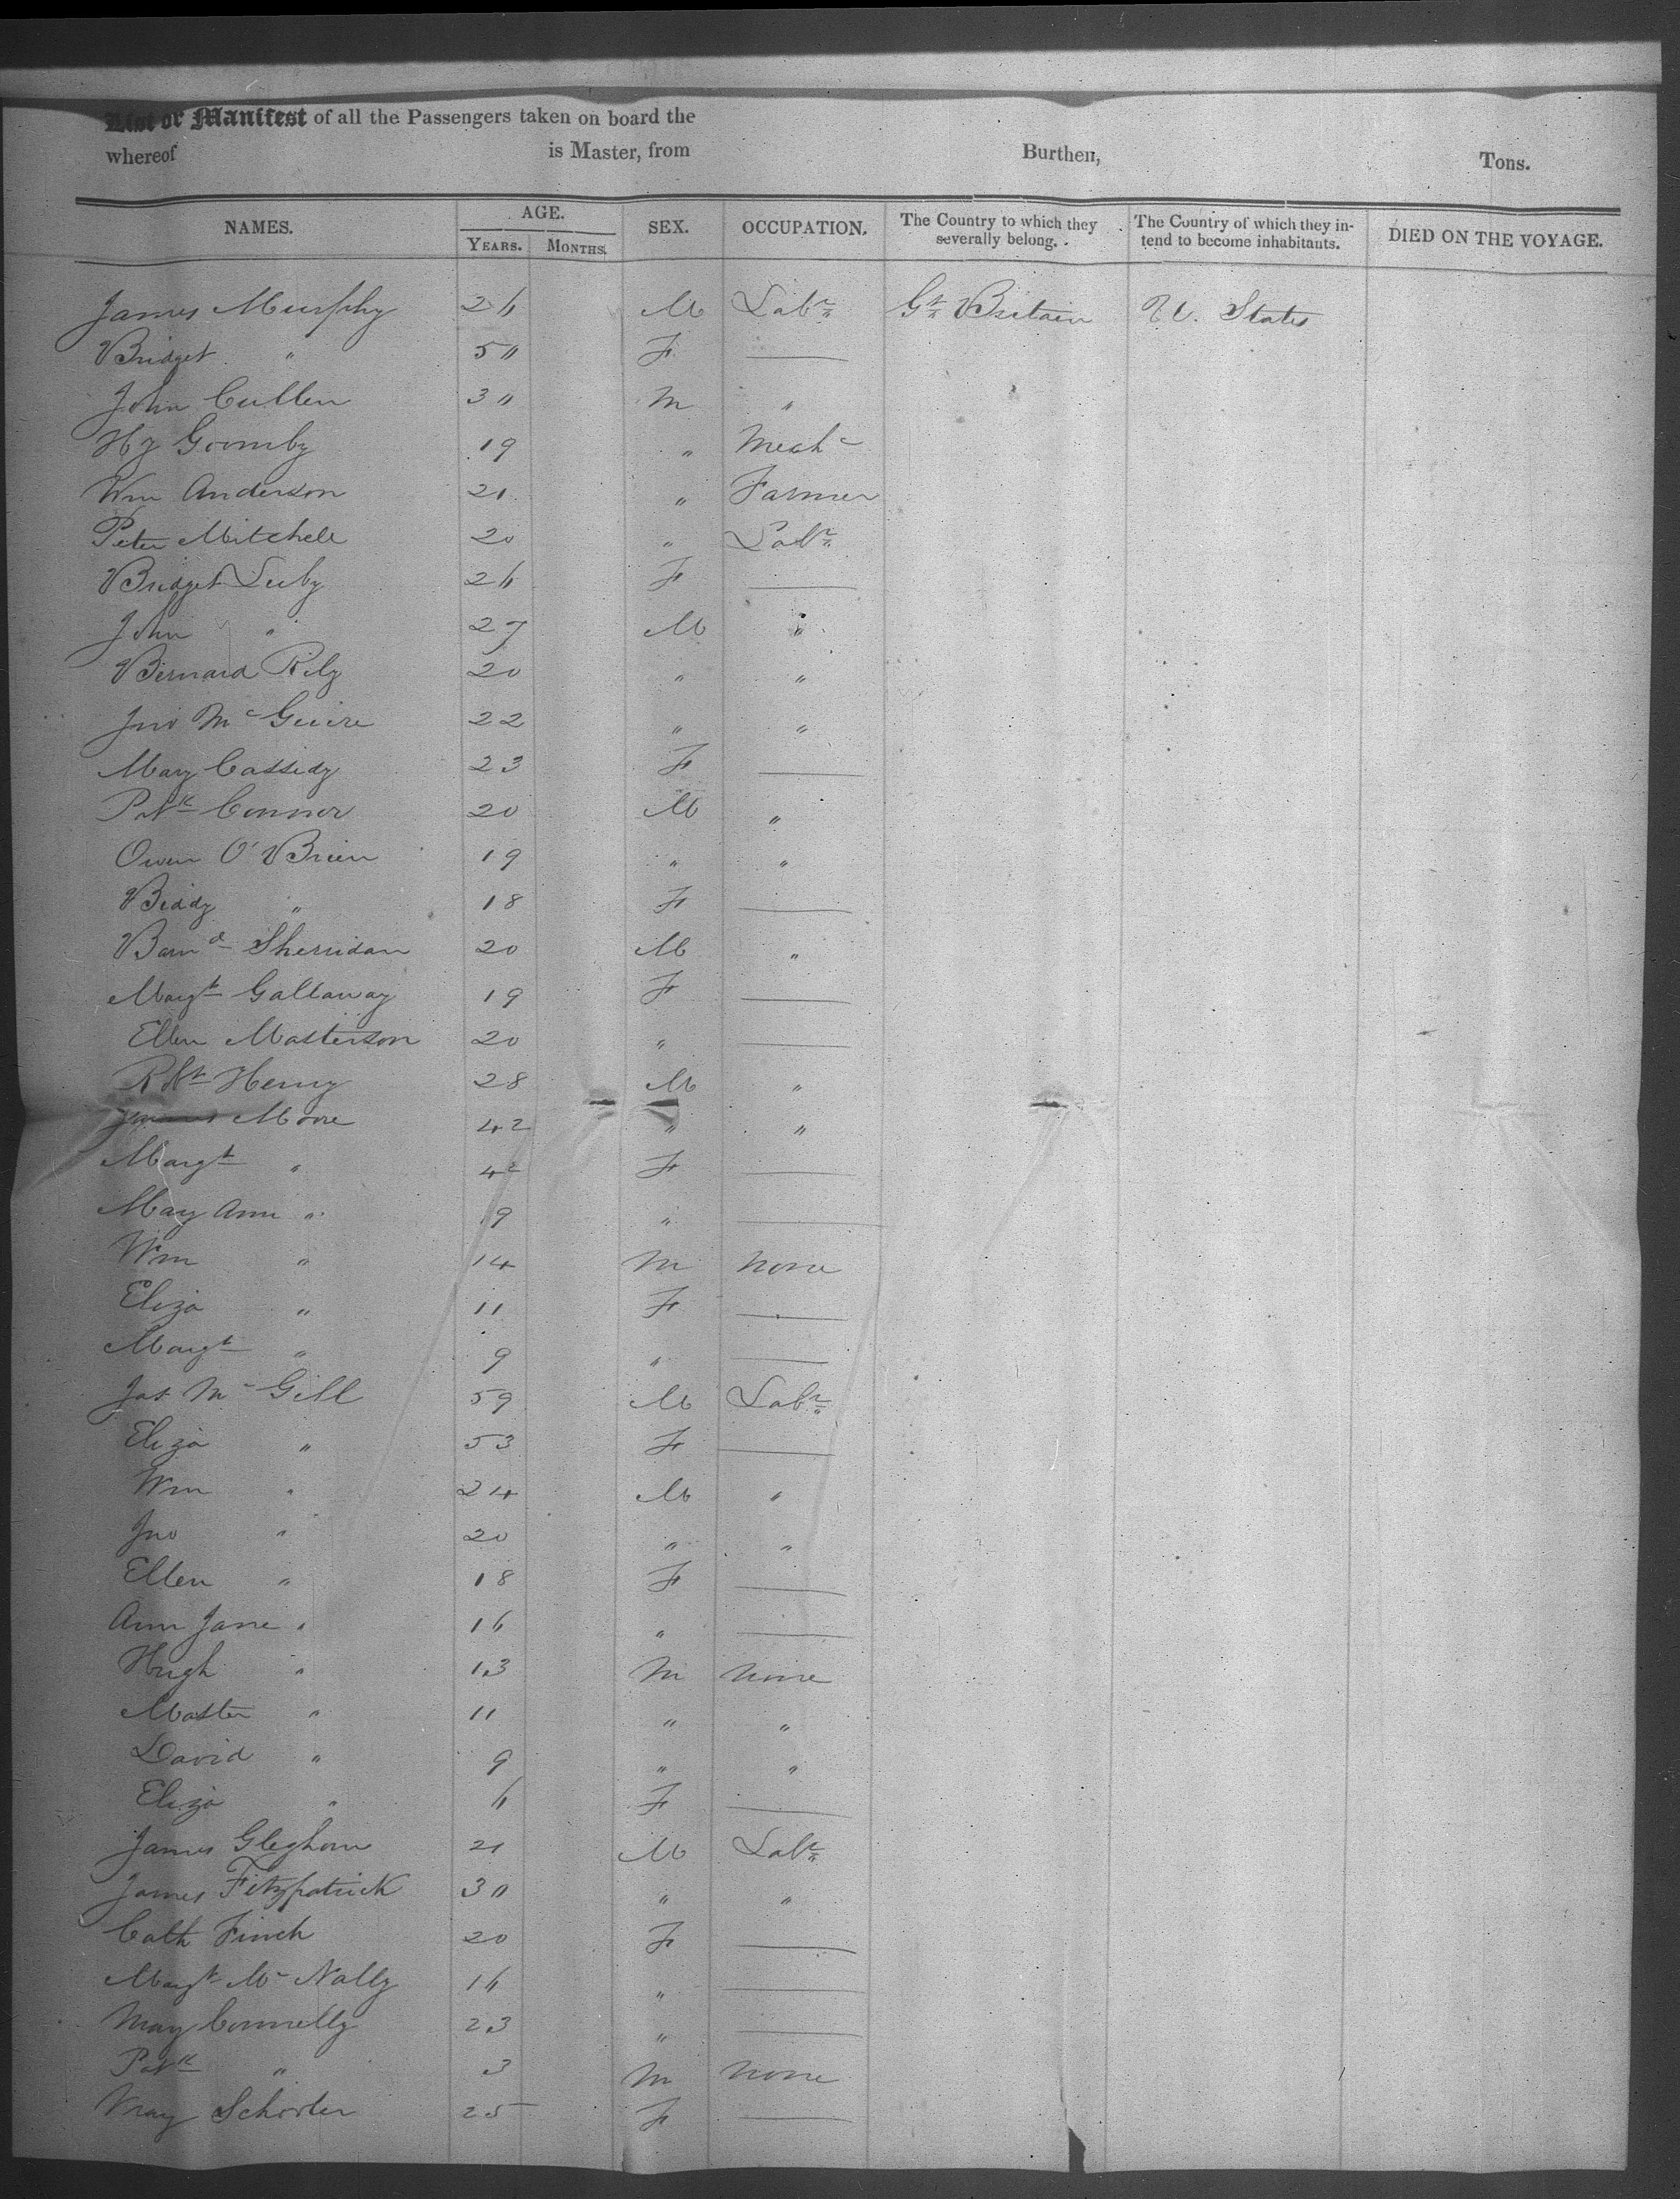 List or Manifest of all the Passengers taken on board the
whereof is Master, from Burthen, Tons.
NAMES. AGE. YEARS. MONTHS. SEX. OCCUPATION. The Country to which they severally belong. The Country of which they intend to become inhabitants. DIED ON THE VOYAGE.
James Murphy 26 M Labr Gt Britain U. States
Bridget " 50 F —
John Cullen 30 M "
Hy 19 " Mech
Wm Anderson 21 " Farmer
Peter Mitchell 20 " Labr
Bridget Luby 26 F —
John " 27 M "
Bernard Rily 20 " "
Jno McGuire 22 " "
Mary Cassidy 23 F —
Patk Connor 20 M "
Owen O'Brien 19 " "
Biddy " 18 F —
Barnd Sherridan 20 M "
Margt Gallaway 19 F —
Ellen Masterson 20 " —
Robt Henry 28 M "
James Moore 42 " "
Margt " 42 F —
Mary Ann " 19 " —
Wm " 14 M none
Eliza " 11 F —
Margt " 9 " —
Jas McGill 59 M Labr
Eliza " 53 F —
Wm " 24 M "
Jno " 20 " "
Ellen " 18 F —
Ann Jane " 16 " —
Hugh " 13 M none
Master " 11 " "
David " 9 " "
Eliza " 6 F —
James Gleghorn 21 M Labr
James Fitzpatrick 30 " "
Cath Finch 20 F —
Margt McNally 16 " —
Mary Connelly 23 " —
Patk " 3 M none
Mary 25 F —